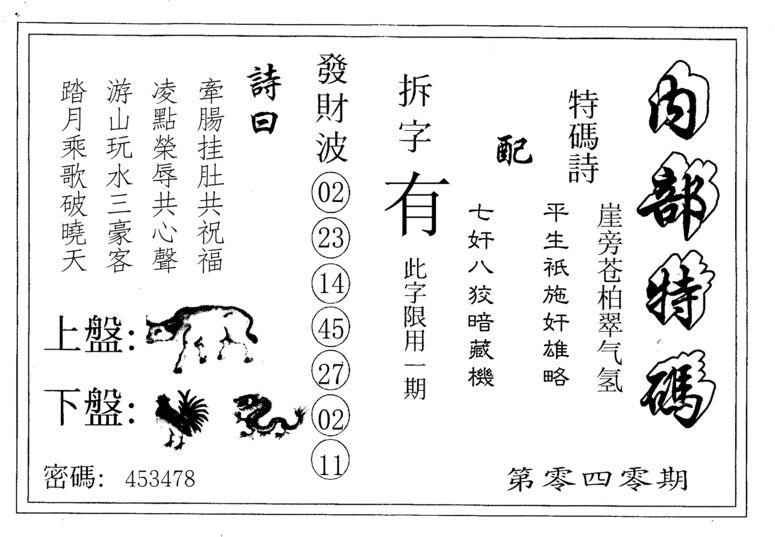 內部特碼
特碼詩
崖旁苍柏翠气氢
平生衹施奸雄略
配
七奸八狡暗藏機
拆字
有
此字限用一期
發財波
02
23
14
45
27
02
11
詩曰
牽腸挂肚共祝福
凌點榮辱共心聲
游山玩水三豪客
踏月乘歌破曉天
上盤:
下盤:
密碼: 453478
第零四零期